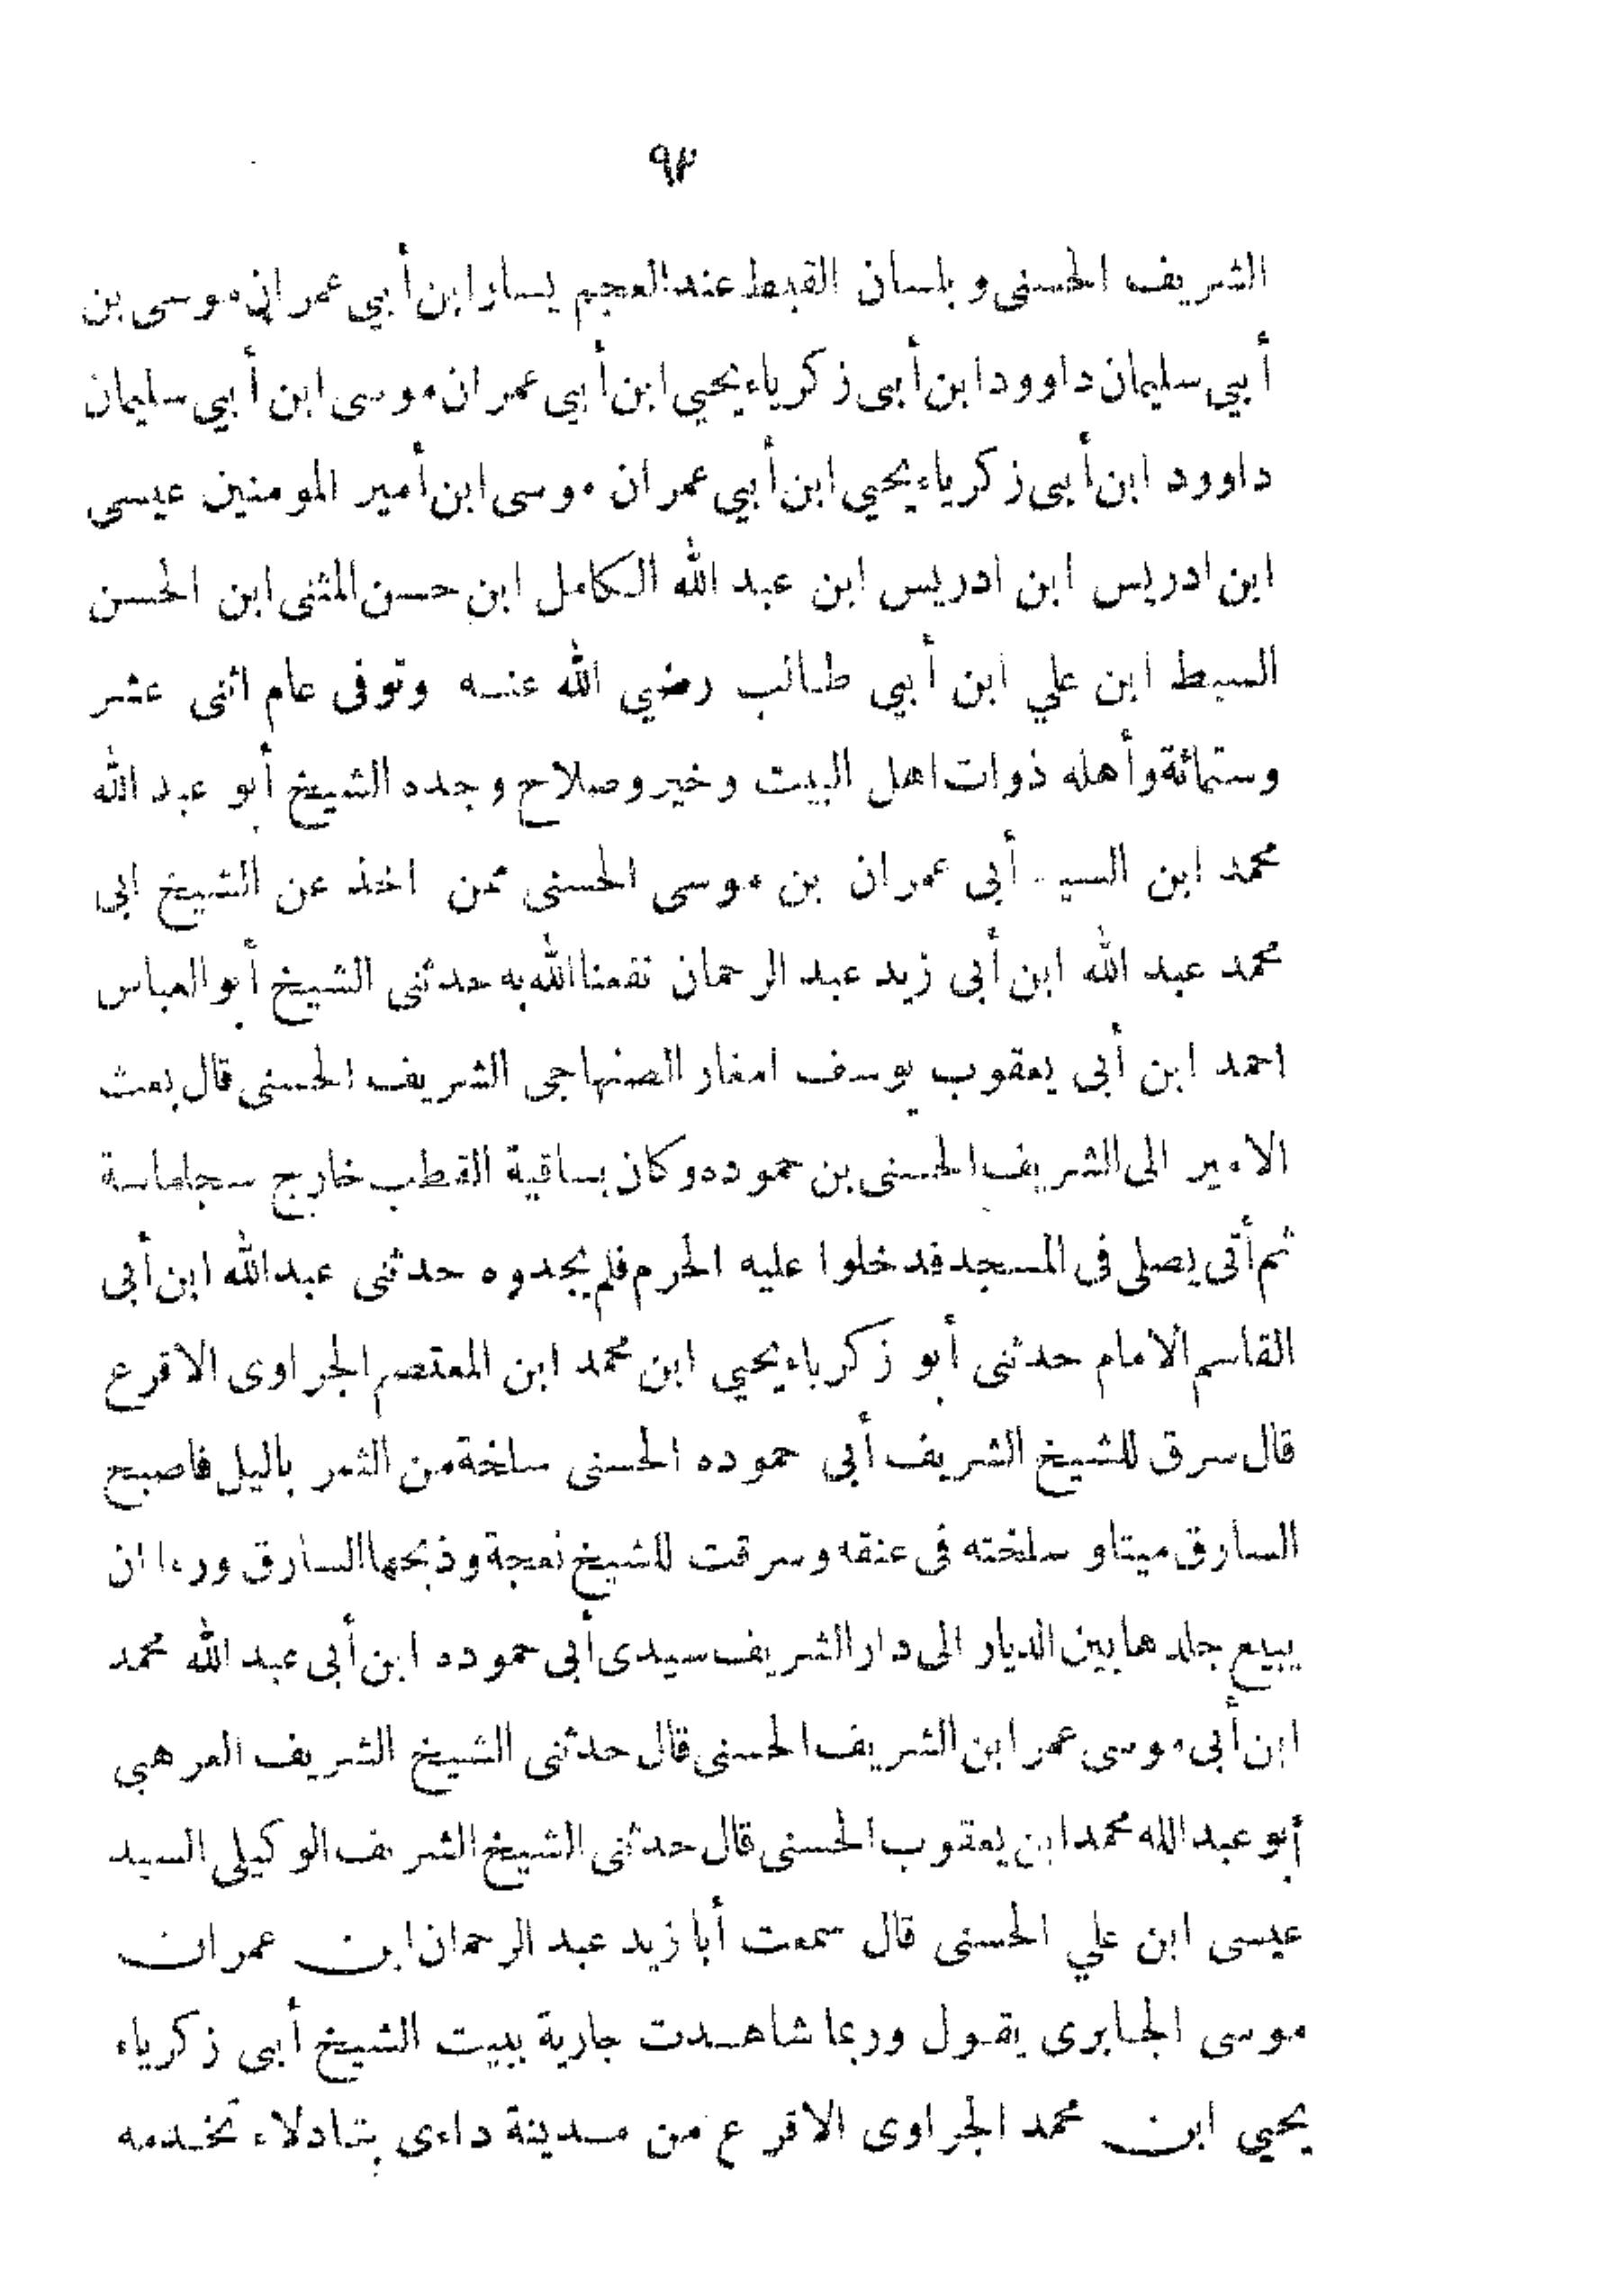 ٩٣
الشريف الحسنى و بلسان القبط عند العجم يسار ابن أبي عمران موسى بن
أبي سليمان داوود ابن أبى زكرياء يحيي ابن أبي عمران موسى ابن أبي سليمان
داوود ابن أبى زكرياء يحيي ابن أبي عمران موسى ابن أمير المومنين عيسى
ابن ادريس ابن ادريس ابن عبد الله الكامل ابن حسن المثنى ابن الحسن
السبط ابن علي ابن أبي طالب رضي الله عنه وتوفى عام اثنى عشر
وستمائة وأهله ذوات اهل البيت وخير وصلاح وجده الشيخ أبو عبد الله
محمد ابن السيد أبى عمران بن موسى الحسنى ممن اخذ عن الشيخ ابى
محمد عبد الله ابن أبى زيد عبد الرحمان نفعنا الله به حدثنى الشيخ أبو العباس
احمد ابن أبى يعقوب يوسف امغار الصنهاجى الشريف الحسنى قال بعث
الامير الى الشريف الحسنى بن حموده وكان بساقية القطب خارج سجلماسة
ثم أتى يصلى فى المسجد فدخلوا عليه الحرم فلم يجدوه حدثنى عبد الله ابن أبى
القاسم الامام حدثنى أبو زكرياء يحيي ابن محمد ابن المعتصم الجراوى الاقرع
قال سرق للشيخ الشريف أبى حموده الحسنى سلخة من الثمر باليل فاصبح
السارق ميتا و سلخته فى عنقه وسرقت للشيخ نعجة وذبحها السارق ورءا ان
يبيع جلدها بين الديار الى دار الشريف سيدى أبى حموده ابن أبى عبد الله محمد
ابن أبى موسى عمر ابن الشريف الحسنى قال حدثنى الشيخ الشريف العرهبي
أبو عبد الله محمد ابن يعقوب الحسنى قال حدثنى الشيخ الشريف الوكيلى السيد
عيسى ابن علي الحسنى قال سمعت أبا زيد عبد الرحمان ابن عمران
موسى الجابرى يقول وربما شاهدت جارية ببيت الشيخ أبى زكرياء
يحيي ابن محمد الجراوى الاقرع من مدينة داءى بتادلاء تخدمه